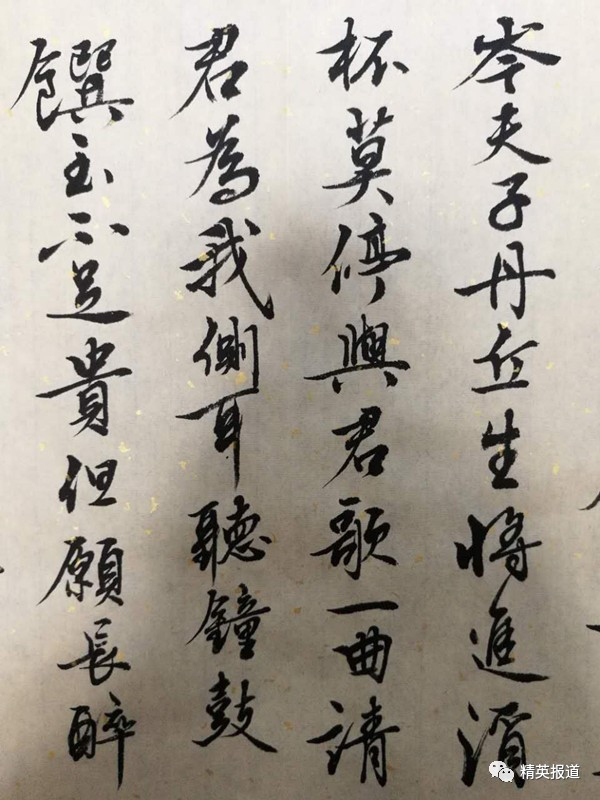 岑夫子丹丘生將進酒
杯莫停與君歌一曲請
君為我側耳聽鐘鼓
饌玉不足貴但願長醉
精英报道